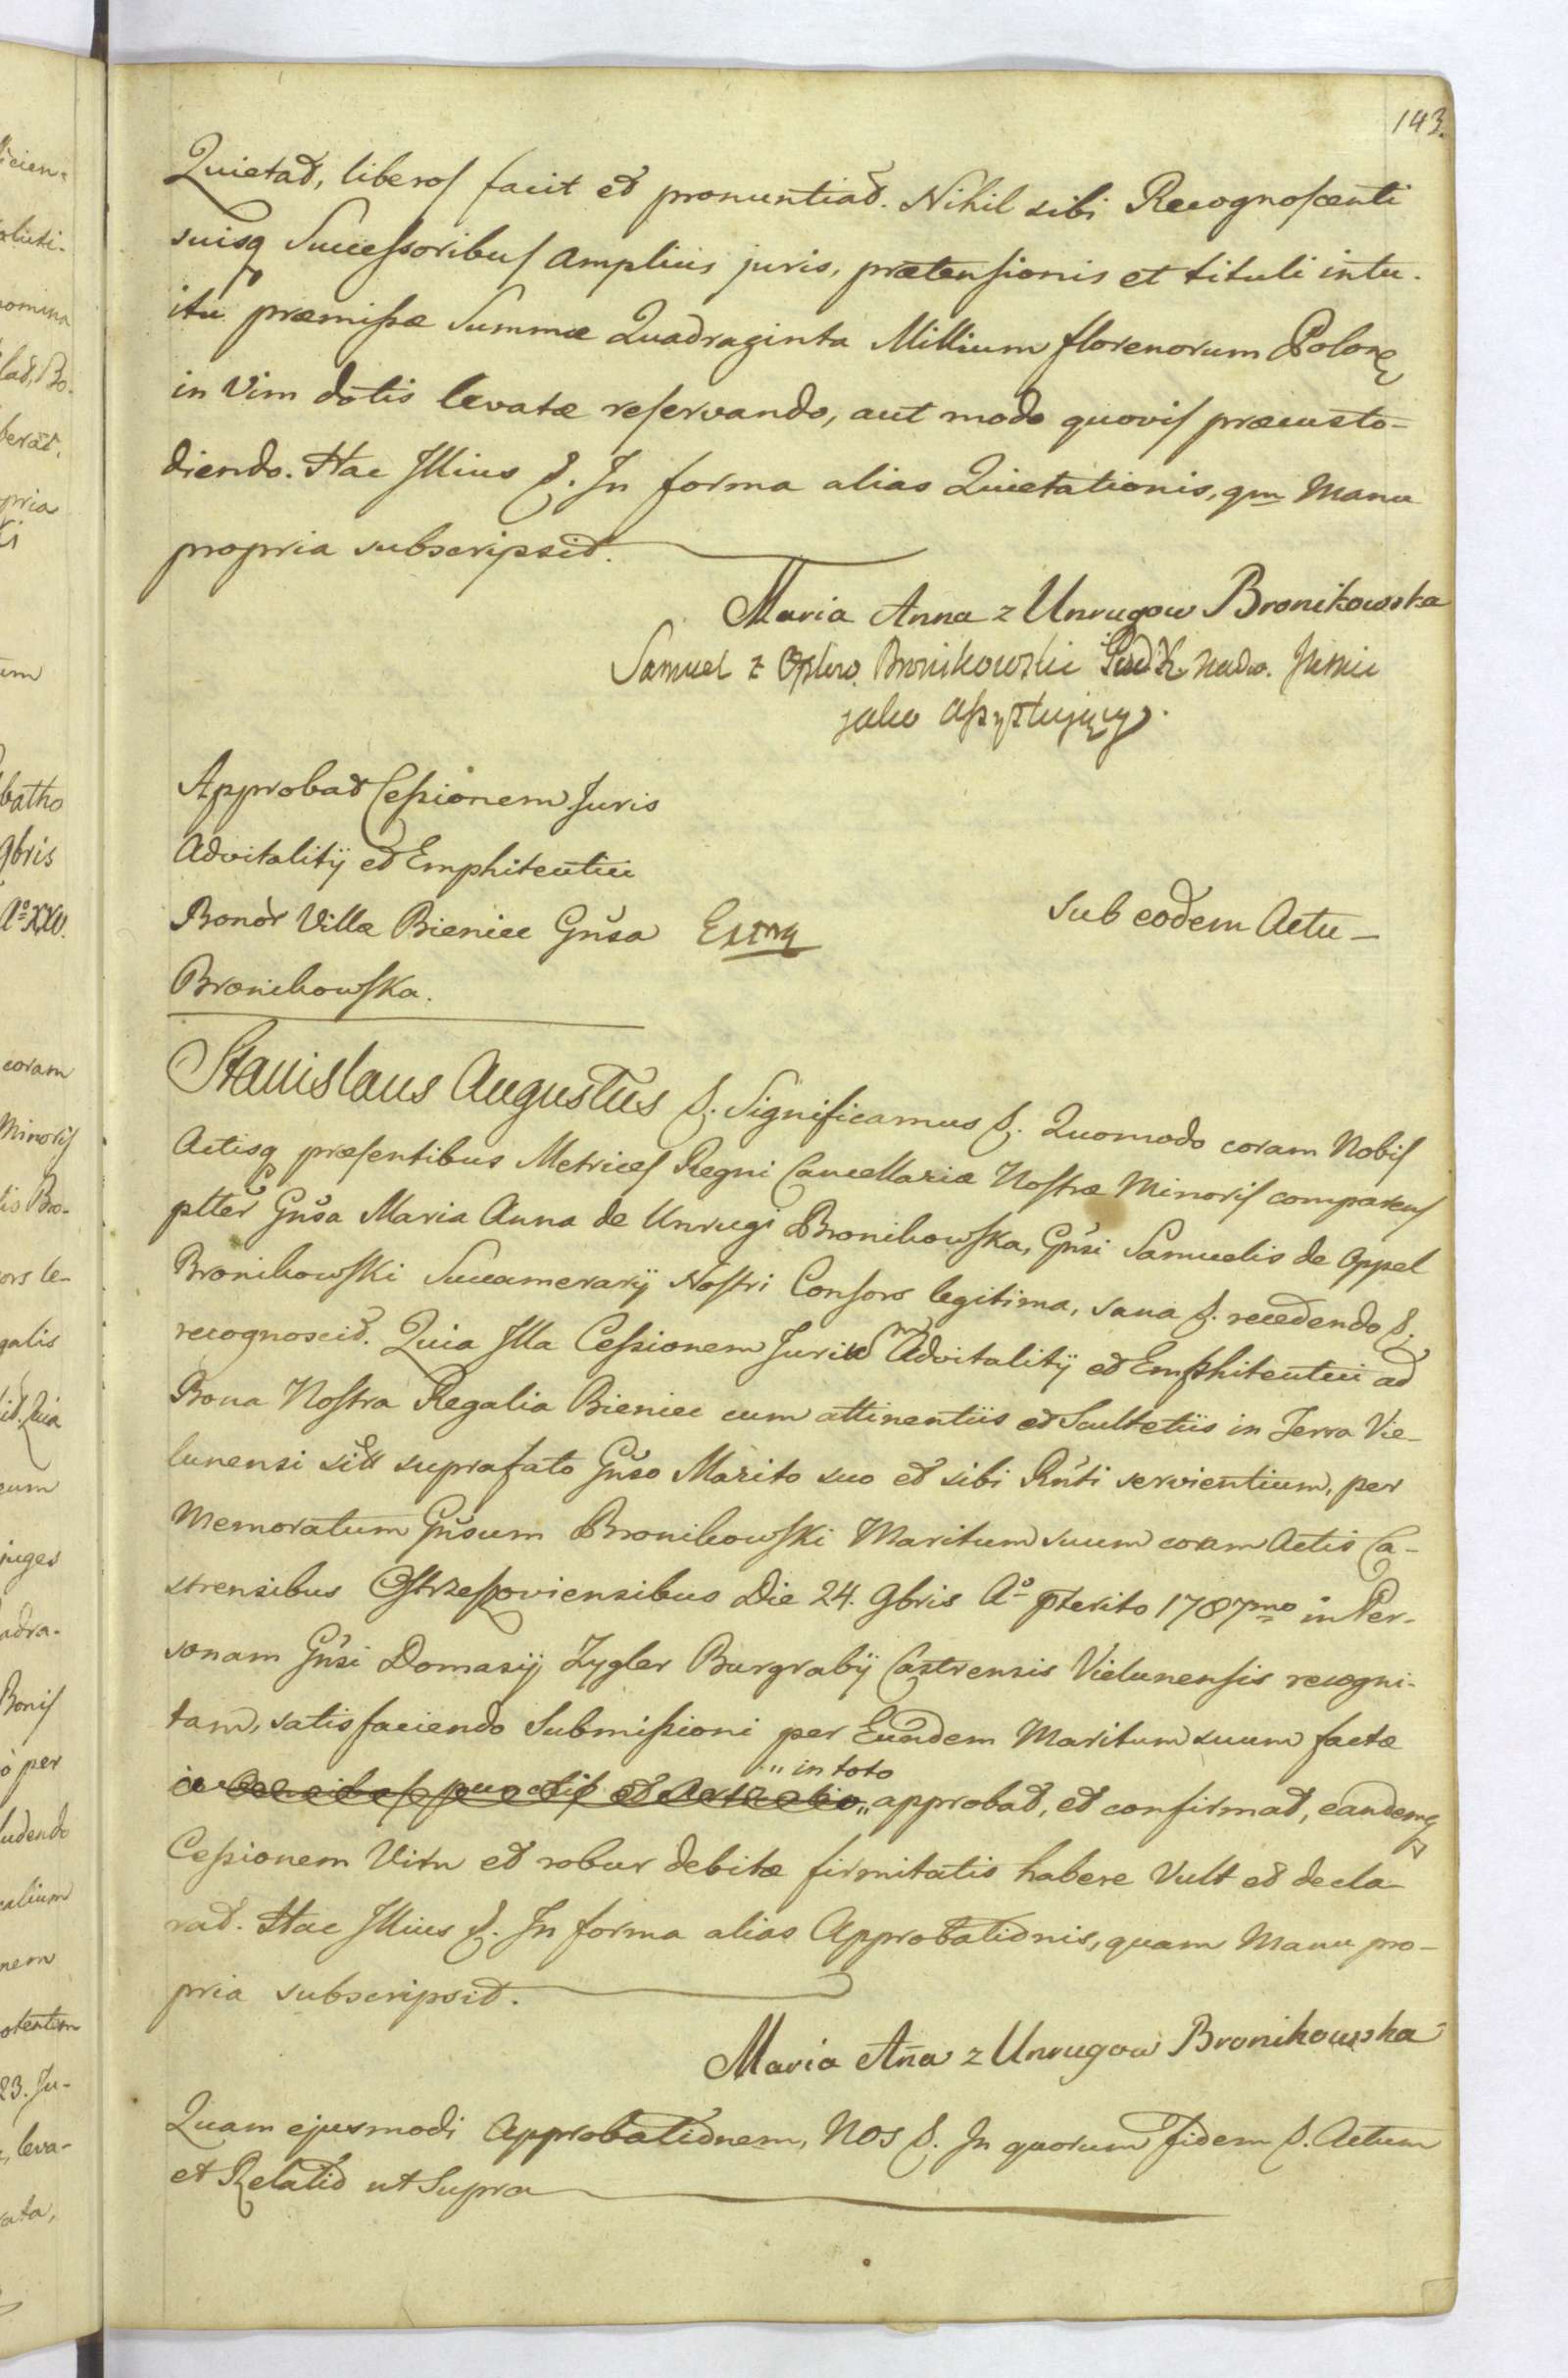 143.
Quietat, liberos facit et pronuntiat. Nihil sibi Recognoscenti
suisq Successoribus amplius juris, prætensionis et tituli intu-
itu præmissæ Summæ Quadraginta Millium florenorum Polone
in Vim dotis levatæ reservando, aut modo quovis præcusto=
diendo. Hac Illius &. In forma alias Quietationis, qm Manu
propria subscripsit.
Maria Anna z Unrugow Bronikowska
Samuel z Bronikowski nadw.
jako assystujący.
Approbat Cessionem Juris
Advitalitÿ et Emphiteutici
Bonor Villæ Bieniec Gnsa Extm
sub eodem Actu —
Bronikowska.
Stanislaus Augustus &. Significamus &. Quomodo coram Nobis
Actisq præsentibus Metrices Regni Cancellariæ Nostræ Minoris comparens
ptter Gnsa Maria Anna de Unrugi Bronikowska, Gnsi Samuelis de Oppel
Bronikowski Succamerarÿ Nostri Consors legitima, sana &. recedendo &.
recognoscit. Quia Illa Cessionem Jurium Advitalitÿ et Emphiteutici ad
Bona Nostra Regalia Bieniec cum attinentiis et Scultetiis in Terra Vie-
lunensi sitt suprafato Gnso Marito suo et sibi Rnti servientium, per
Memoratum Gnsum Bronikowski Maritum suum coram Actis Ca-
strensibus Ostrzeszoviensibus Die 24. 9bris Aº pterito 1787mo in Per-
sonam Gnsi Domasÿ Zygler Burgrabÿ Castrensis Vielunensis recogni-
tam, satisfaciendo Submissioni per Eundem Maritum suum factæ
" in toto
in " approbat, et confirmat, eandemq
Cessionem Vim et robur debitæ firmitatis habere Vult et decla-
rat. Hac Illius &. In forma alias Approbationis, quam Manu pro-
pria subscripsit.
Maria Aña z Unrugow Bronikowska
Quam ejusmodi Approbationem, Nos &. In quorum Fidem &. Actum
et Relatio ut Supra